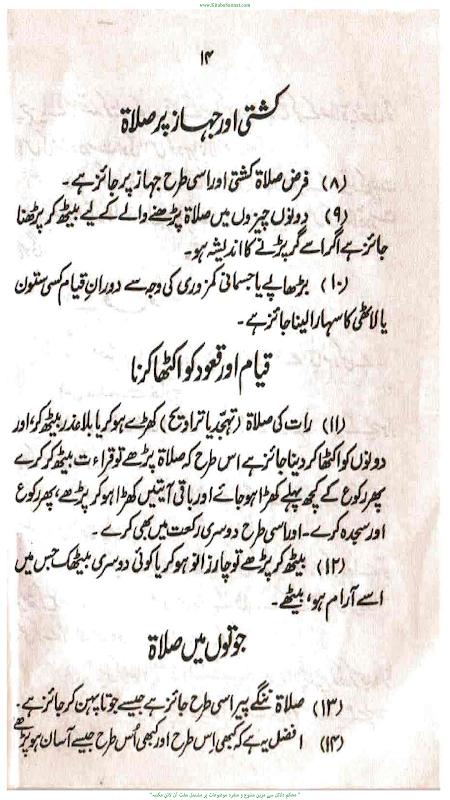 www.KitaboSunnat.com
۱۴
کشتی اور جہاز پر صلاۃ
(۸) فرض صلاۃ کشتی اور اسی طرح جہاز پر جائز ہے۔
(۹) دونوں چیزوں میں صلاۃ پڑھنے والے کے لیے بیٹھ کر پڑھنا
جائز ہے اگر اسے گر پڑنے کا اندیشہ ہو۔
(۱۰) بڑھاپے یا جسمانی کمزوری کی وجہ سے دورانِ قیام کسی ستون
یا لاٹھی کا سہارا لینا جائز ہے۔
قیام اور قعود کو اکٹھا کرنا
(۱۱) رات کی صلاۃ (تہجّد یا تراویح) کھڑے ہو کر یا بلا عذر بیٹھ کر، اور
دونوں کو اکٹھا کر دینا جائز ہے اس طرح کہ صلاۃ پڑھے تو قراءت بیٹھ کر کرے
پھر رکوع کے کچھ پہلے کھڑا ہو جائے اور باقی آیتیں کھڑا ہو کر پڑھے، پھر رکوع
اور سجدہ کرے۔ اور اسی طرح دوسری رکعت میں بھی کرے۔
(۱۲) بیٹھ کر پڑھے تو چار زانو ہو کر یا کوئی دوسری بیٹھک جس میں
اسے آرام ہو، بیٹھے۔
جوتوں میں صلاۃ
(۱۳) صلاۃ ننگے پیر اسی طرح جائز ہے جیسے جوتا پہن کر جائز ہے۔
(۱۴) افضل یہ ہے کہ کبھی اِس طرح اور کبھی اُس طرح جیسے آسان ہو پڑھے
"محکم دلائل سے مزین متنوع و منفرد موضوعات پر مشتمل مفت آن لائن مکتبہ"